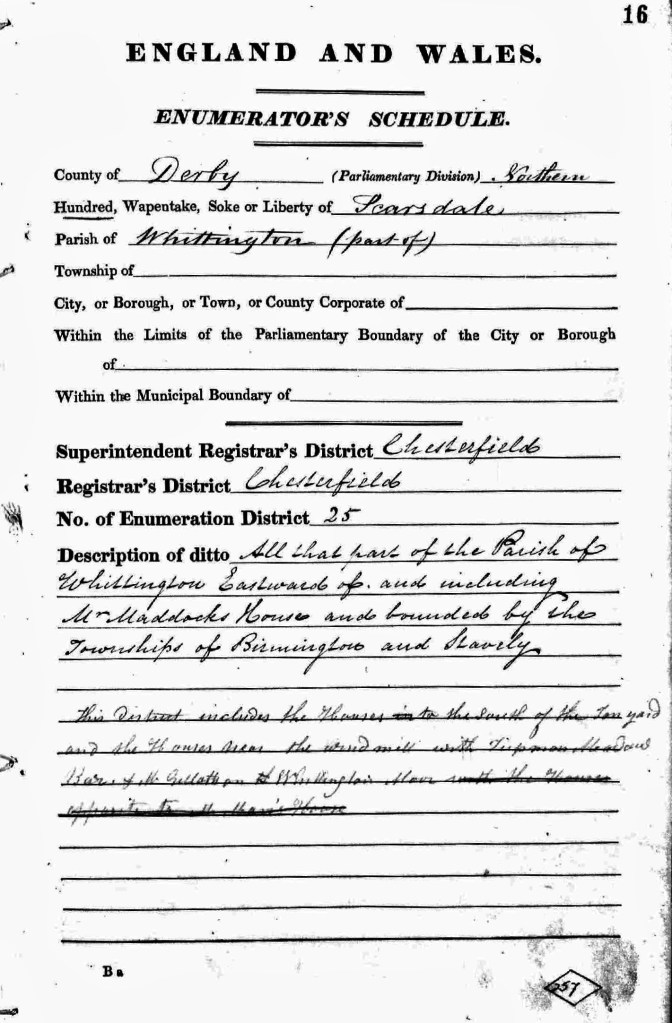 16
ENGLAND AND WALES.
ENUMERATOR'S SCHEDULE.
County of Derby (Parliamentary Division) Northern
Hundred, Wapentake, Soke or Liberty of Scarsdale
Parish of Whittington (part of)
Township of
City, or Borough, or Town, or County Corporate of
Within the Limits of the Parliamentary Boundary of the City or Borough
of
Within the Municipal Boundary of
Superintendent Registrar's District Chesterfield
Registrar's District Chesterfield
No. of Enumeration District 25
Description of ditto All that part of the Parish of
Whittington Eastward of. and including
Mr Maddocks House and bounded by the
Townships of Birmington and Stavely
This District includes the Houses to the South of the Tan yard
and the Houses near the windmill with Meadow
Bar & Mr on Whittington Moor with the Houses
opposite to Mr House
Ba
257